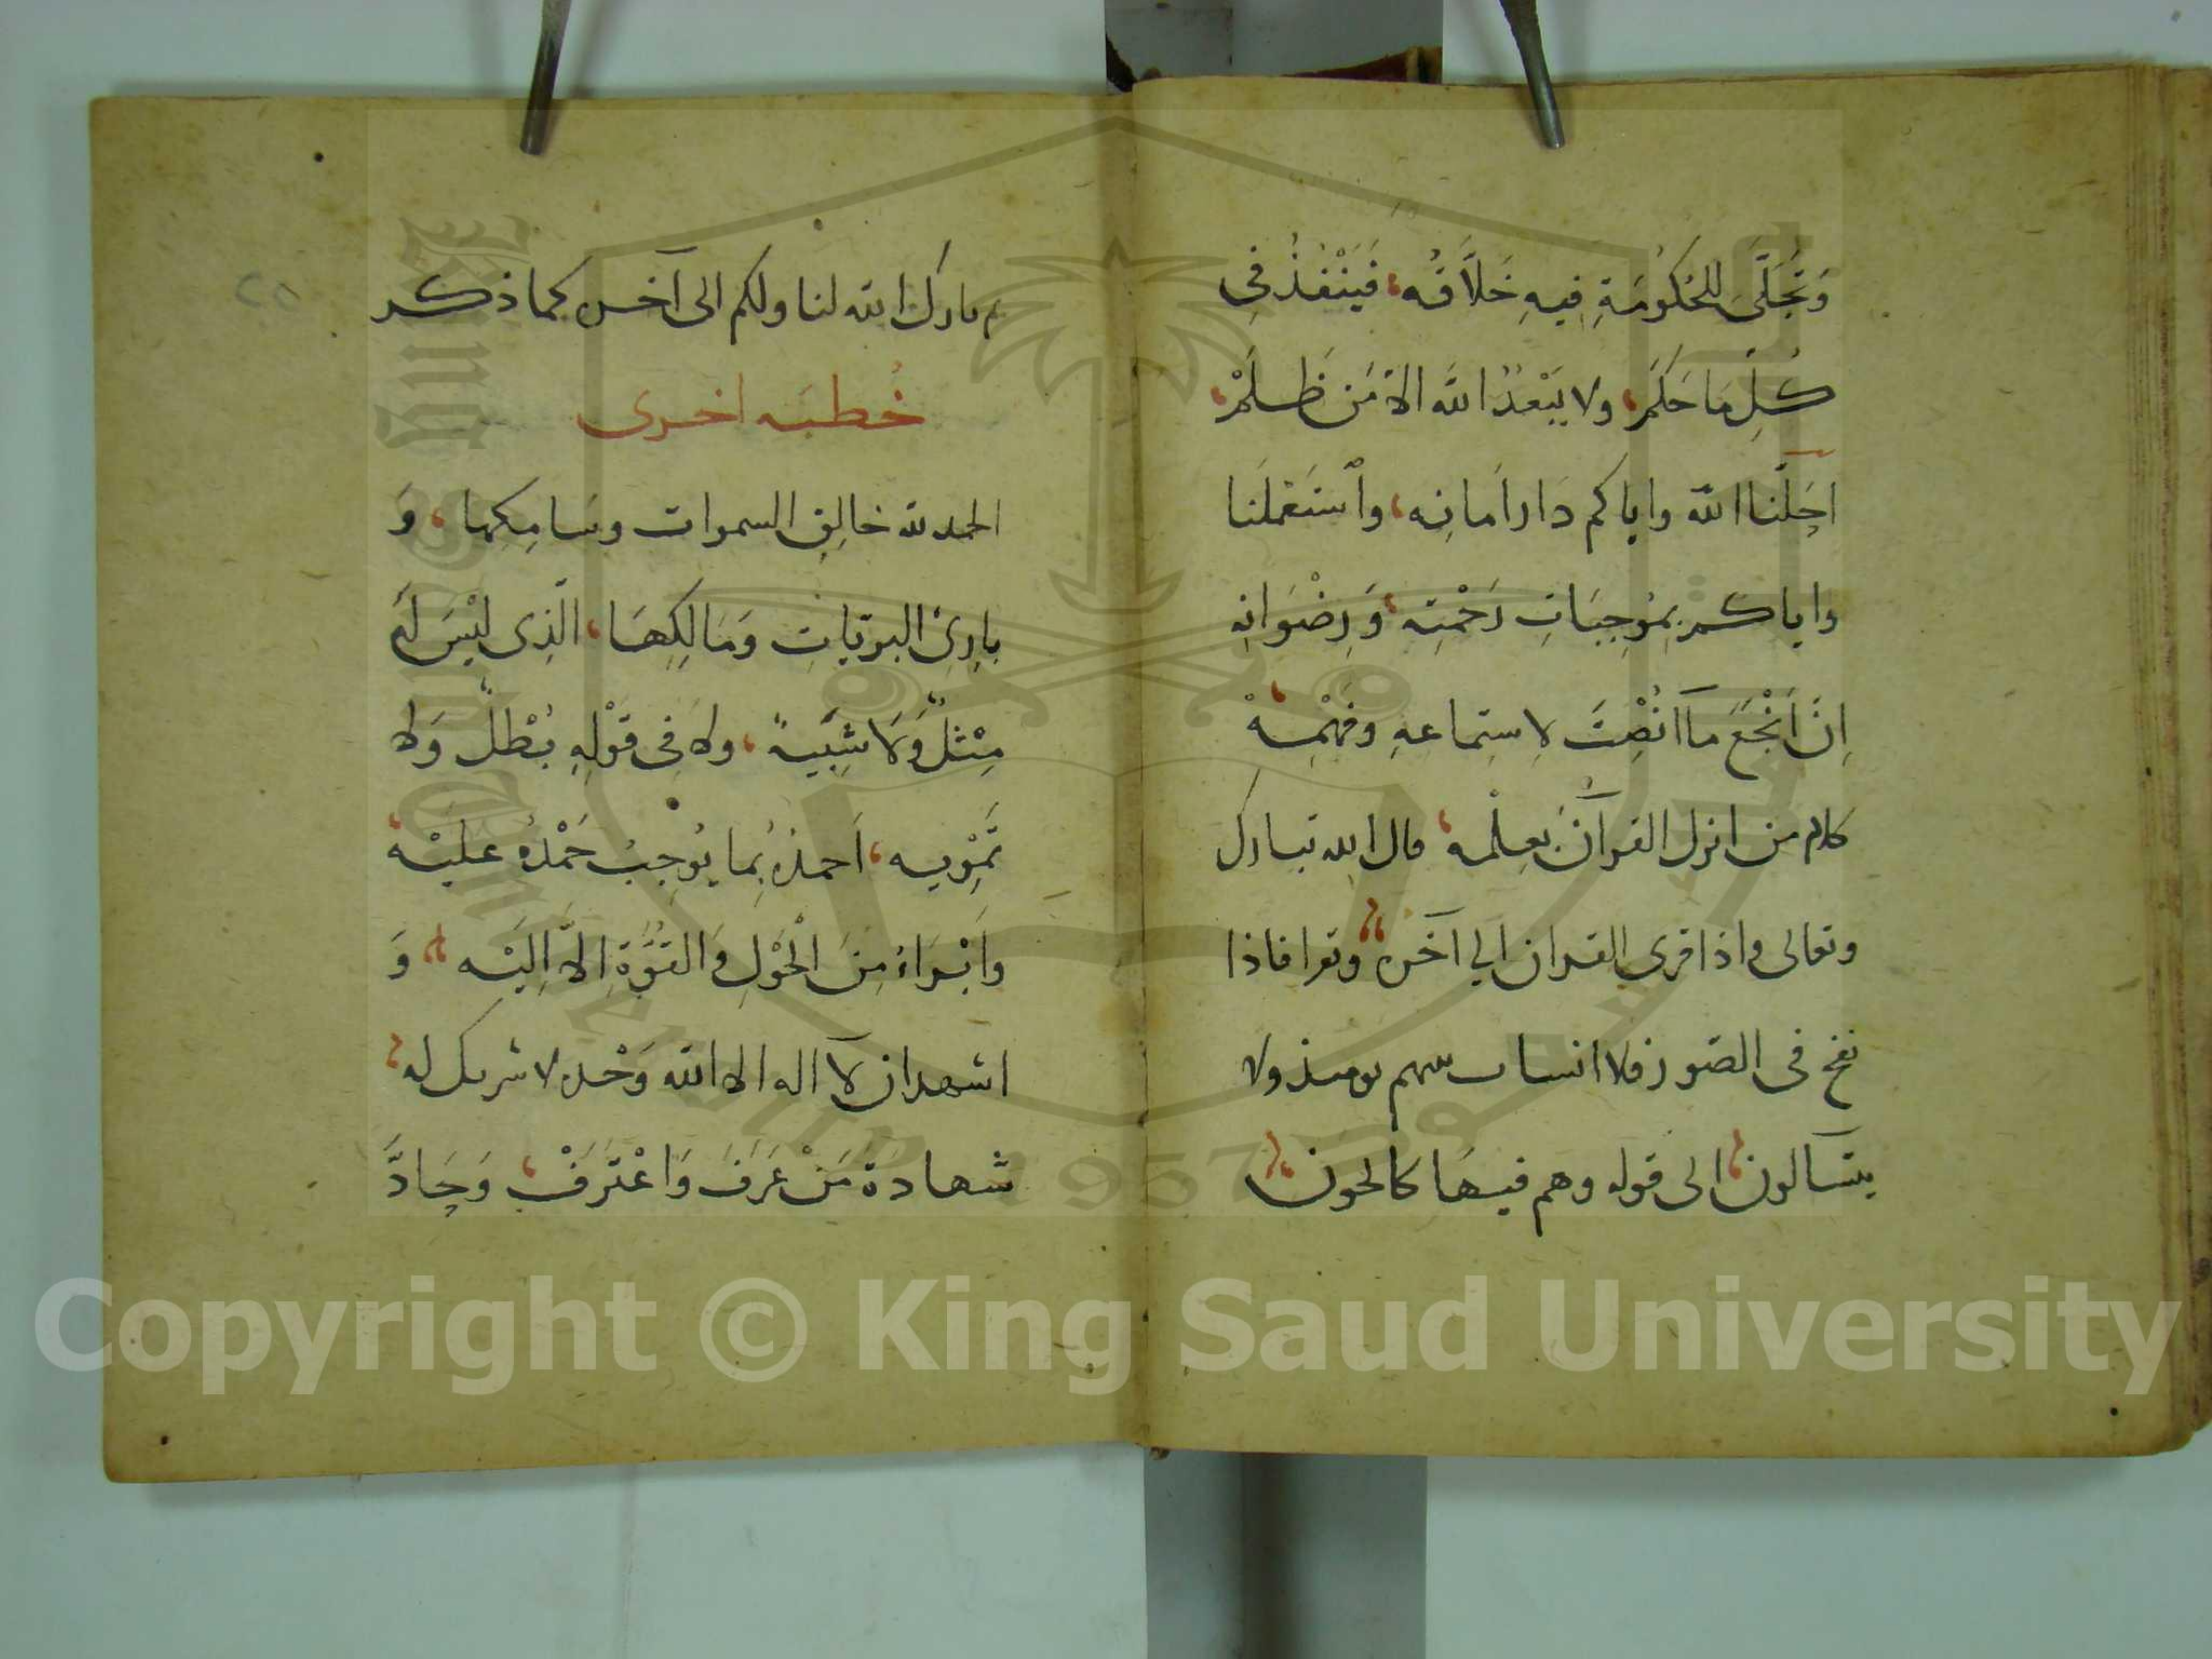 وَتَجَلَّى لِلحُكُومَةِ فِيهِ خَلاَّقُه، فَيَنْفُذُ فِى
كُلِّ مَا حَكَم، ولا يَبْعُدُ الله الا مَن ظَلَمْ،
اَحَلَّنا الله واياكم دَار اَمَانِه، واَسْتَعْمَلَنَا
واياكم بِمُوجِبَاتِ رَحْمَتِه، وَرِضْوَانِه
اِنَّ اَنْجَعَ مَا اُنْصِتَ لاِستِماعهِ وفَهْمِهْ
كلام من انزل القرآنَ بعِلْمه، قال الله تبارك
وتعالى واذا قرى القران الي آخره وتقرا فاذا
نفخ فى الصّور فلا انساب بينهم يومئذ ولا
يتسآلون الى قوله وهم فيها كالحون
ثم بارك الله لنا ولكم الى آخره كما ذكر
خُطبَه اخرى
الحمد لله خالِقِ السموات وسَامِكِها، وَ
بارِئِ البريّاتِ وَمَالِكِهَا، الّذِى لَيْسَ لَهُ
مِثْلٌ وَلَا شَبِيهٌ، ولا فِى قَوْلِهِ بُطْلٌ وَلا
تَمْوِيه، اَحمدُهُ بِما يُوجِبُ حَمْدُهُ عليْه،
وَاَبْرَاءُ مِنَ الْحَوْلِ وَالقُوَّةِ اِلاَّ اِلَيْه وَ
اشهد ان لآ اله الا الله وَحْده لا شريك له
شهادَةَ مَنْ عَرَفَ وَاعْتَرَفْ، وَجَادَّ
Copyright © King Saud University
King Saud University
1957